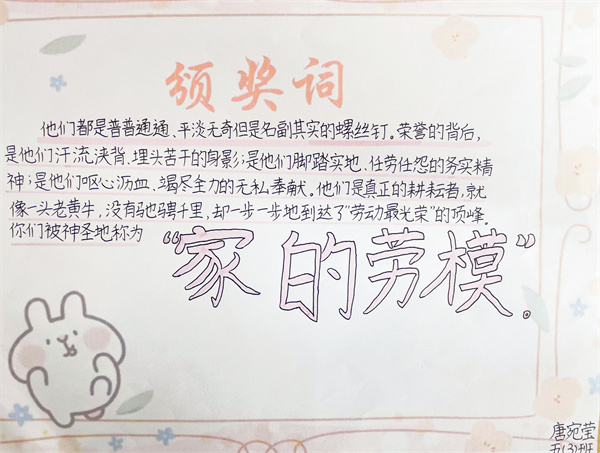 颁奖词
他们都是普普通通、平淡无奇但是名副其实的螺丝钉。荣誉的背后,
是他们汗流浃背、埋头苦干的身影;是他们脚踏实地、任劳任怨的务实精
神;是他们呕心沥血、竭尽全力的无私奉献。他们是真正的耕耘者,就
像一头老黄牛,没有马也骋千里,却一步一步地到达了“劳动最光荣”的顶峰。
你们被神圣地称为
“家的劳模”。
唐宛莹
五(3)班